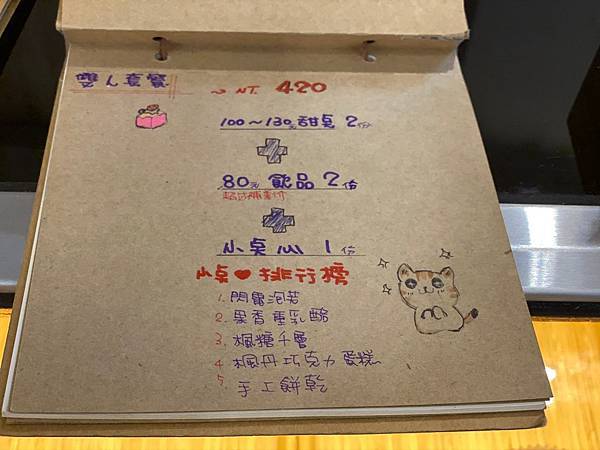 雙人套餐 ~ NT. 420
100~130元甜點 2份
80元 飲品 2份
超過補差價
小點心 1份
小點♥排行榜
1. 閃電泡芙
2. 果香重乳酪
3. 楓糖千層
4. 楓丹巧克力蛋糕
5. 手工餅乾